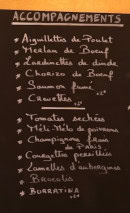 ACCOMPAGNEMENTS
* Aiguillettes de Poulet
* Merlan de Boeuf
* Lardinettes de dinde
* Chorizo de Boeuf
* Saumon fumé
* Crevettes
* Tomates sechées
* Méli-Mélo de poivrons
* Champignons frais
de Paris
* Courgettes persillées
* Lamelles d'aubergines
* Brocolis
* BURRATINA